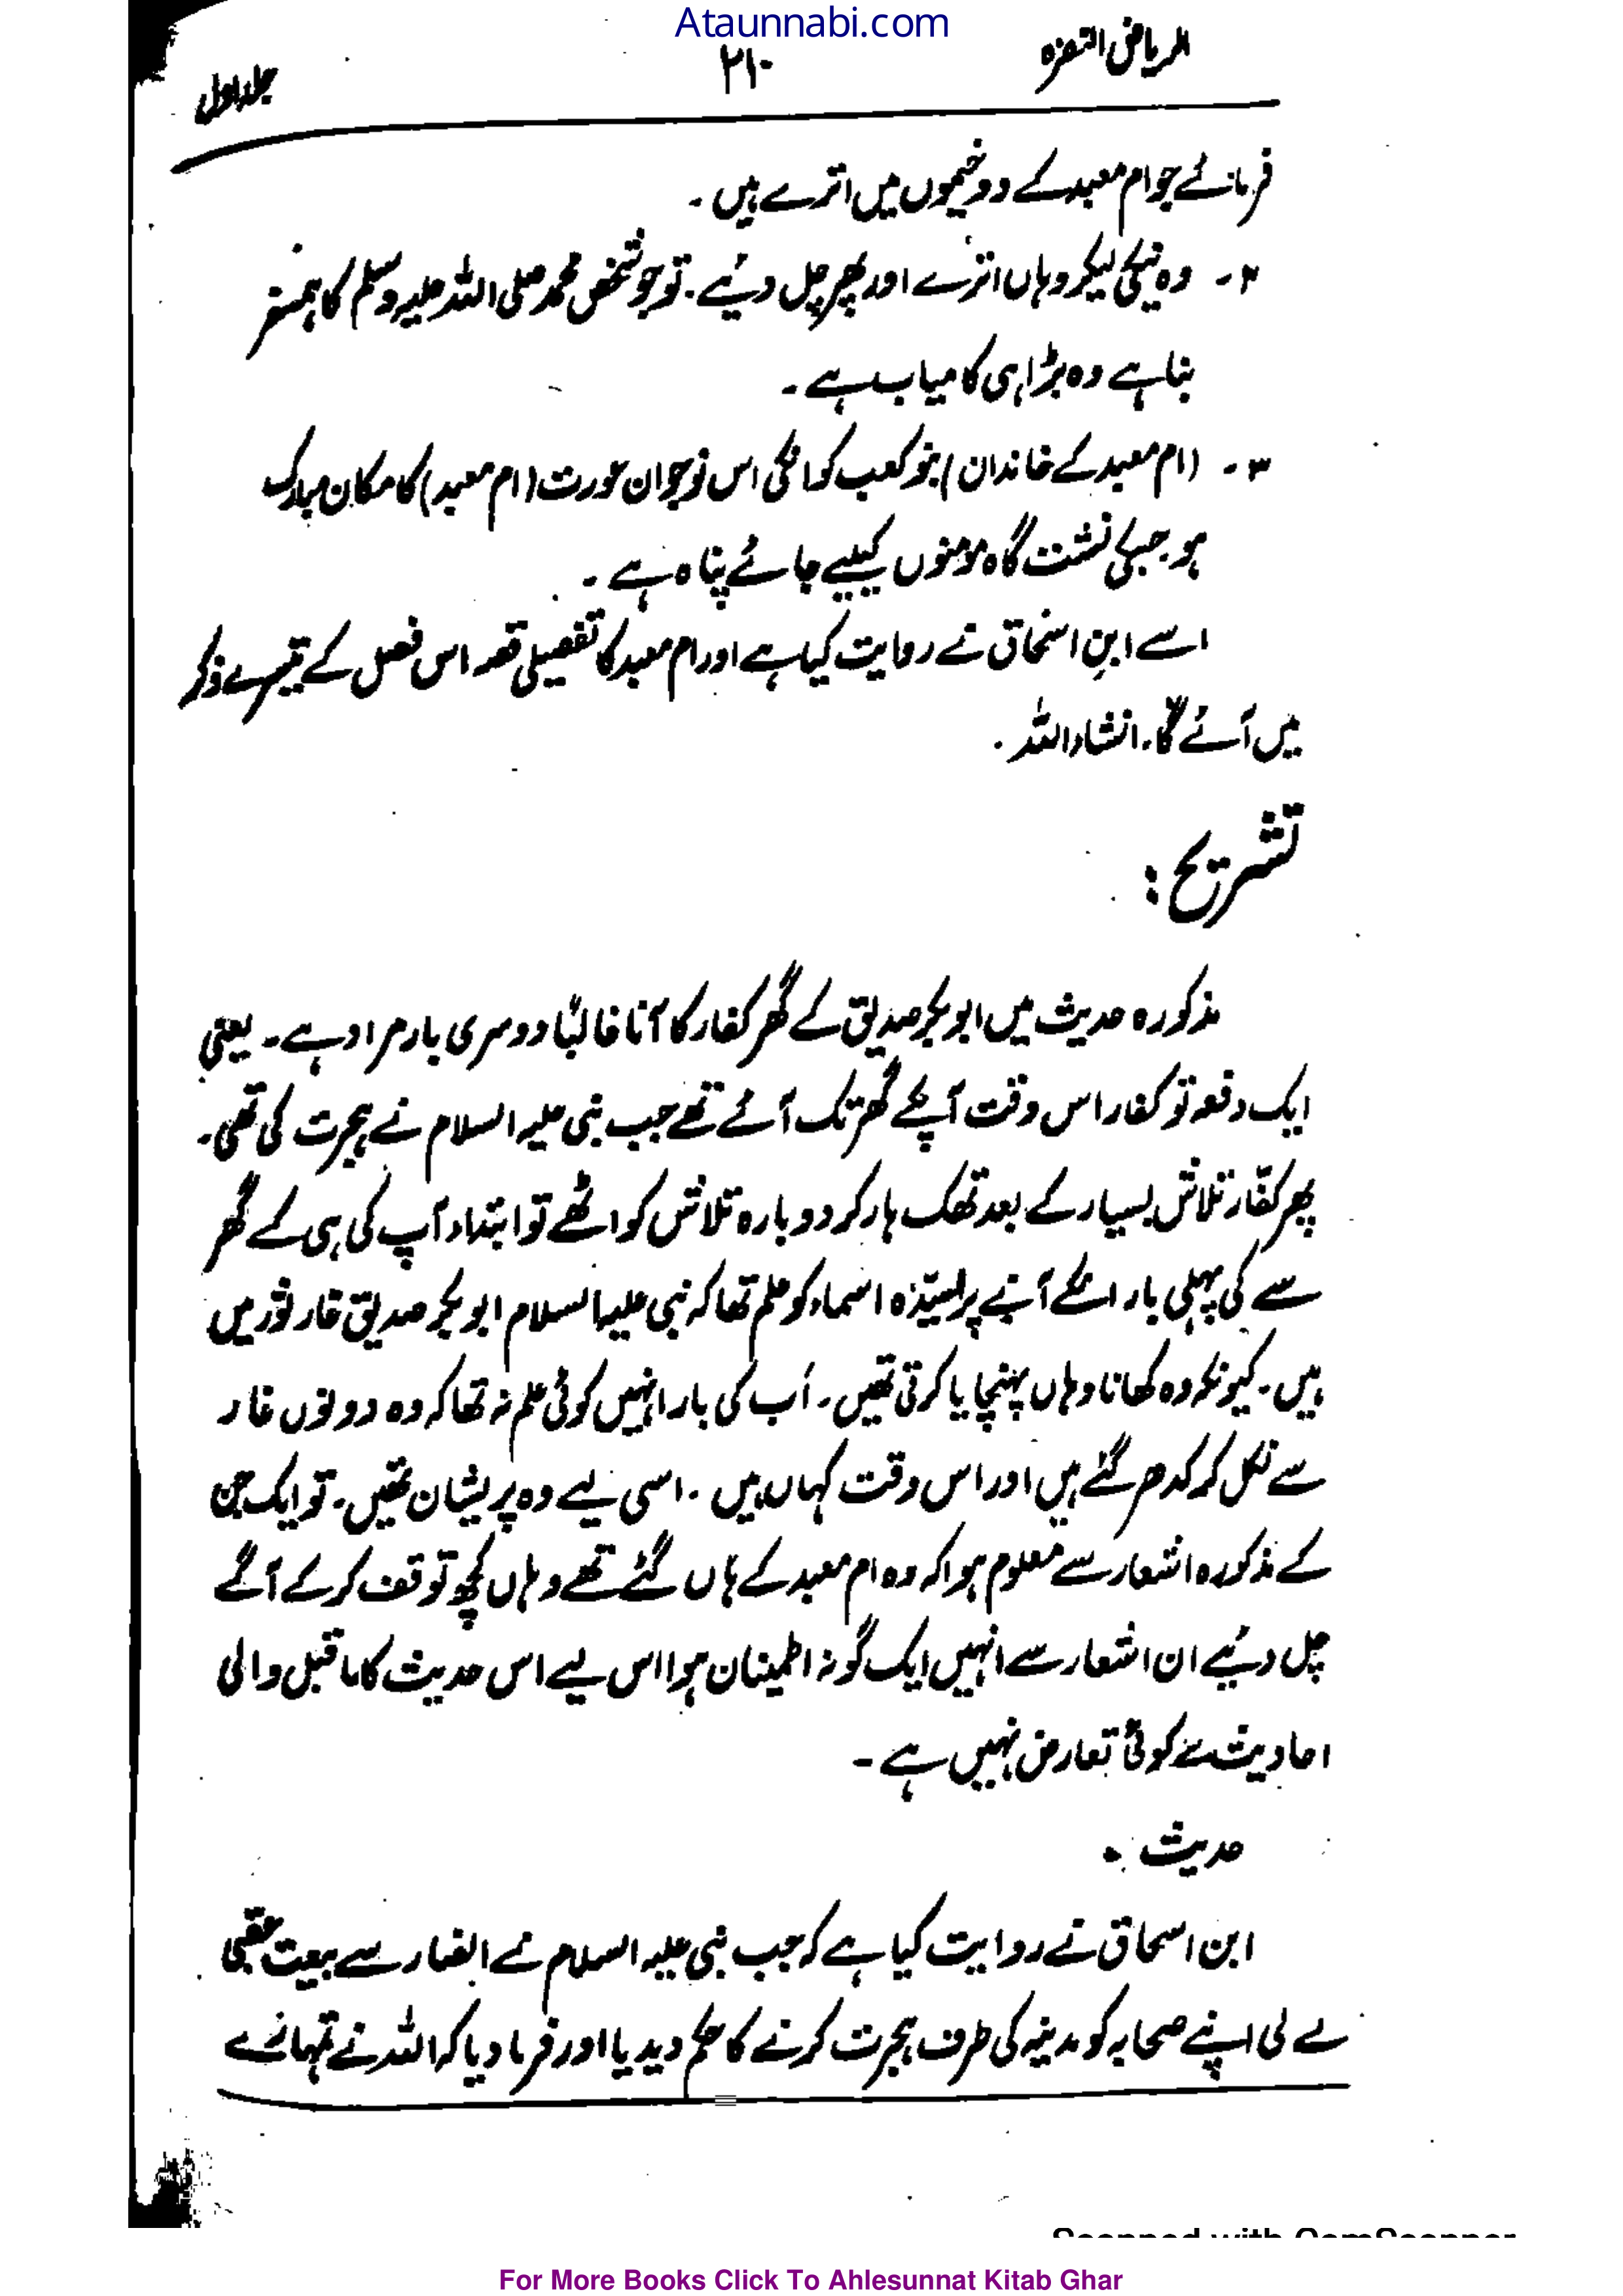 Ataunnabi.com
الریاض النضرہ
۲۱۰
جلد اول
فرمائے جو ام معبد کے دو خیموں میں اترے ہیں ۔
۲ ۔ وہ نیکی لیکر وہاں اترے اور پھر چل دیئے ۔ تو جو شخص محمد صلی اللہ علیہ وسلم کا ہمسفر
بنا ہے وہ بڑا ہی کامیاب ہے ۔
۳ ۔ (ام معبد کے خاندان) بنو کعب کو انکی اس نوجوان عورت (ام معبد) کا مکان مبارک
ہو جسکی نشست گاہ مومنوں کیلیے جائے پناہ ہے ۔
اسے ابنِ اسحاق نے روایت کیا ہے اور ام معبد کا تفصیلی قصہ اس فصل کے تیسرے ذکر
میں آئے گا ۔ انشاء اللہ ۔
تشریح :
مذکورہ حدیث میں ابوبکر صدیق کے گھر کفار کا آنا غالبًا دوسری بار مراد ہے ۔ یعنی
ایک دفعہ تو کفار اس وقت آپکے گھر تک آئے تھے جب نبی علیہ السلام نے ہجرت کی تھی ۔
پھر کفّار تلاش بسیار کے بعد تھک ہار کر دوبارہ تلاش کو اٹھے تو ابتداء آپ کی ہی کے گھر
سے کی پہلی بار انکے آنے پر سیّدہ اسماء کو علم تھا کہ نبی علیہ السلام ابوبکر صدیق غار ثور میں
ہیں ۔ کیونکہ وہ کھانا وہاں پہنچایا کرتی تھیں ۔ اَب کی بار انہیں کوئی علم نہ تھا کہ وہ دونوں غار
سے نکل کر کدھر گئے ہیں اور اس وقت کہاں ہیں ۔ اسی لیے وہ پریشان تھیں ۔ تو ایک جن
کے مذکورہ اشعار سے معلوم ہوا کہ وہ ام معبد کے ہاں گئے تھے وہاں کچھ توقف کر کے آگے
چل دئیے ان اشعار سے انہیں ایک گونہ اطمینان ہوا اس لیے اس حدیث کا ماقبل والی
احادیث سے کوئی تعارض نہیں ہے ۔
حدیث ۔
ابن اسحاق نے روایت کیا ہے کہ جب نبی علیہ السلام نے انصار سے بیعت عقبیٰ
لے لی اپنے صحابہ کو مدینہ کی طرف ہجرت کرنے کا حکم دیدیا اور فرما دیا کہ اللہ نے تمہارے
Scanned with CamScanner
For More Books Click To Ahlesunnat Kitab Ghar